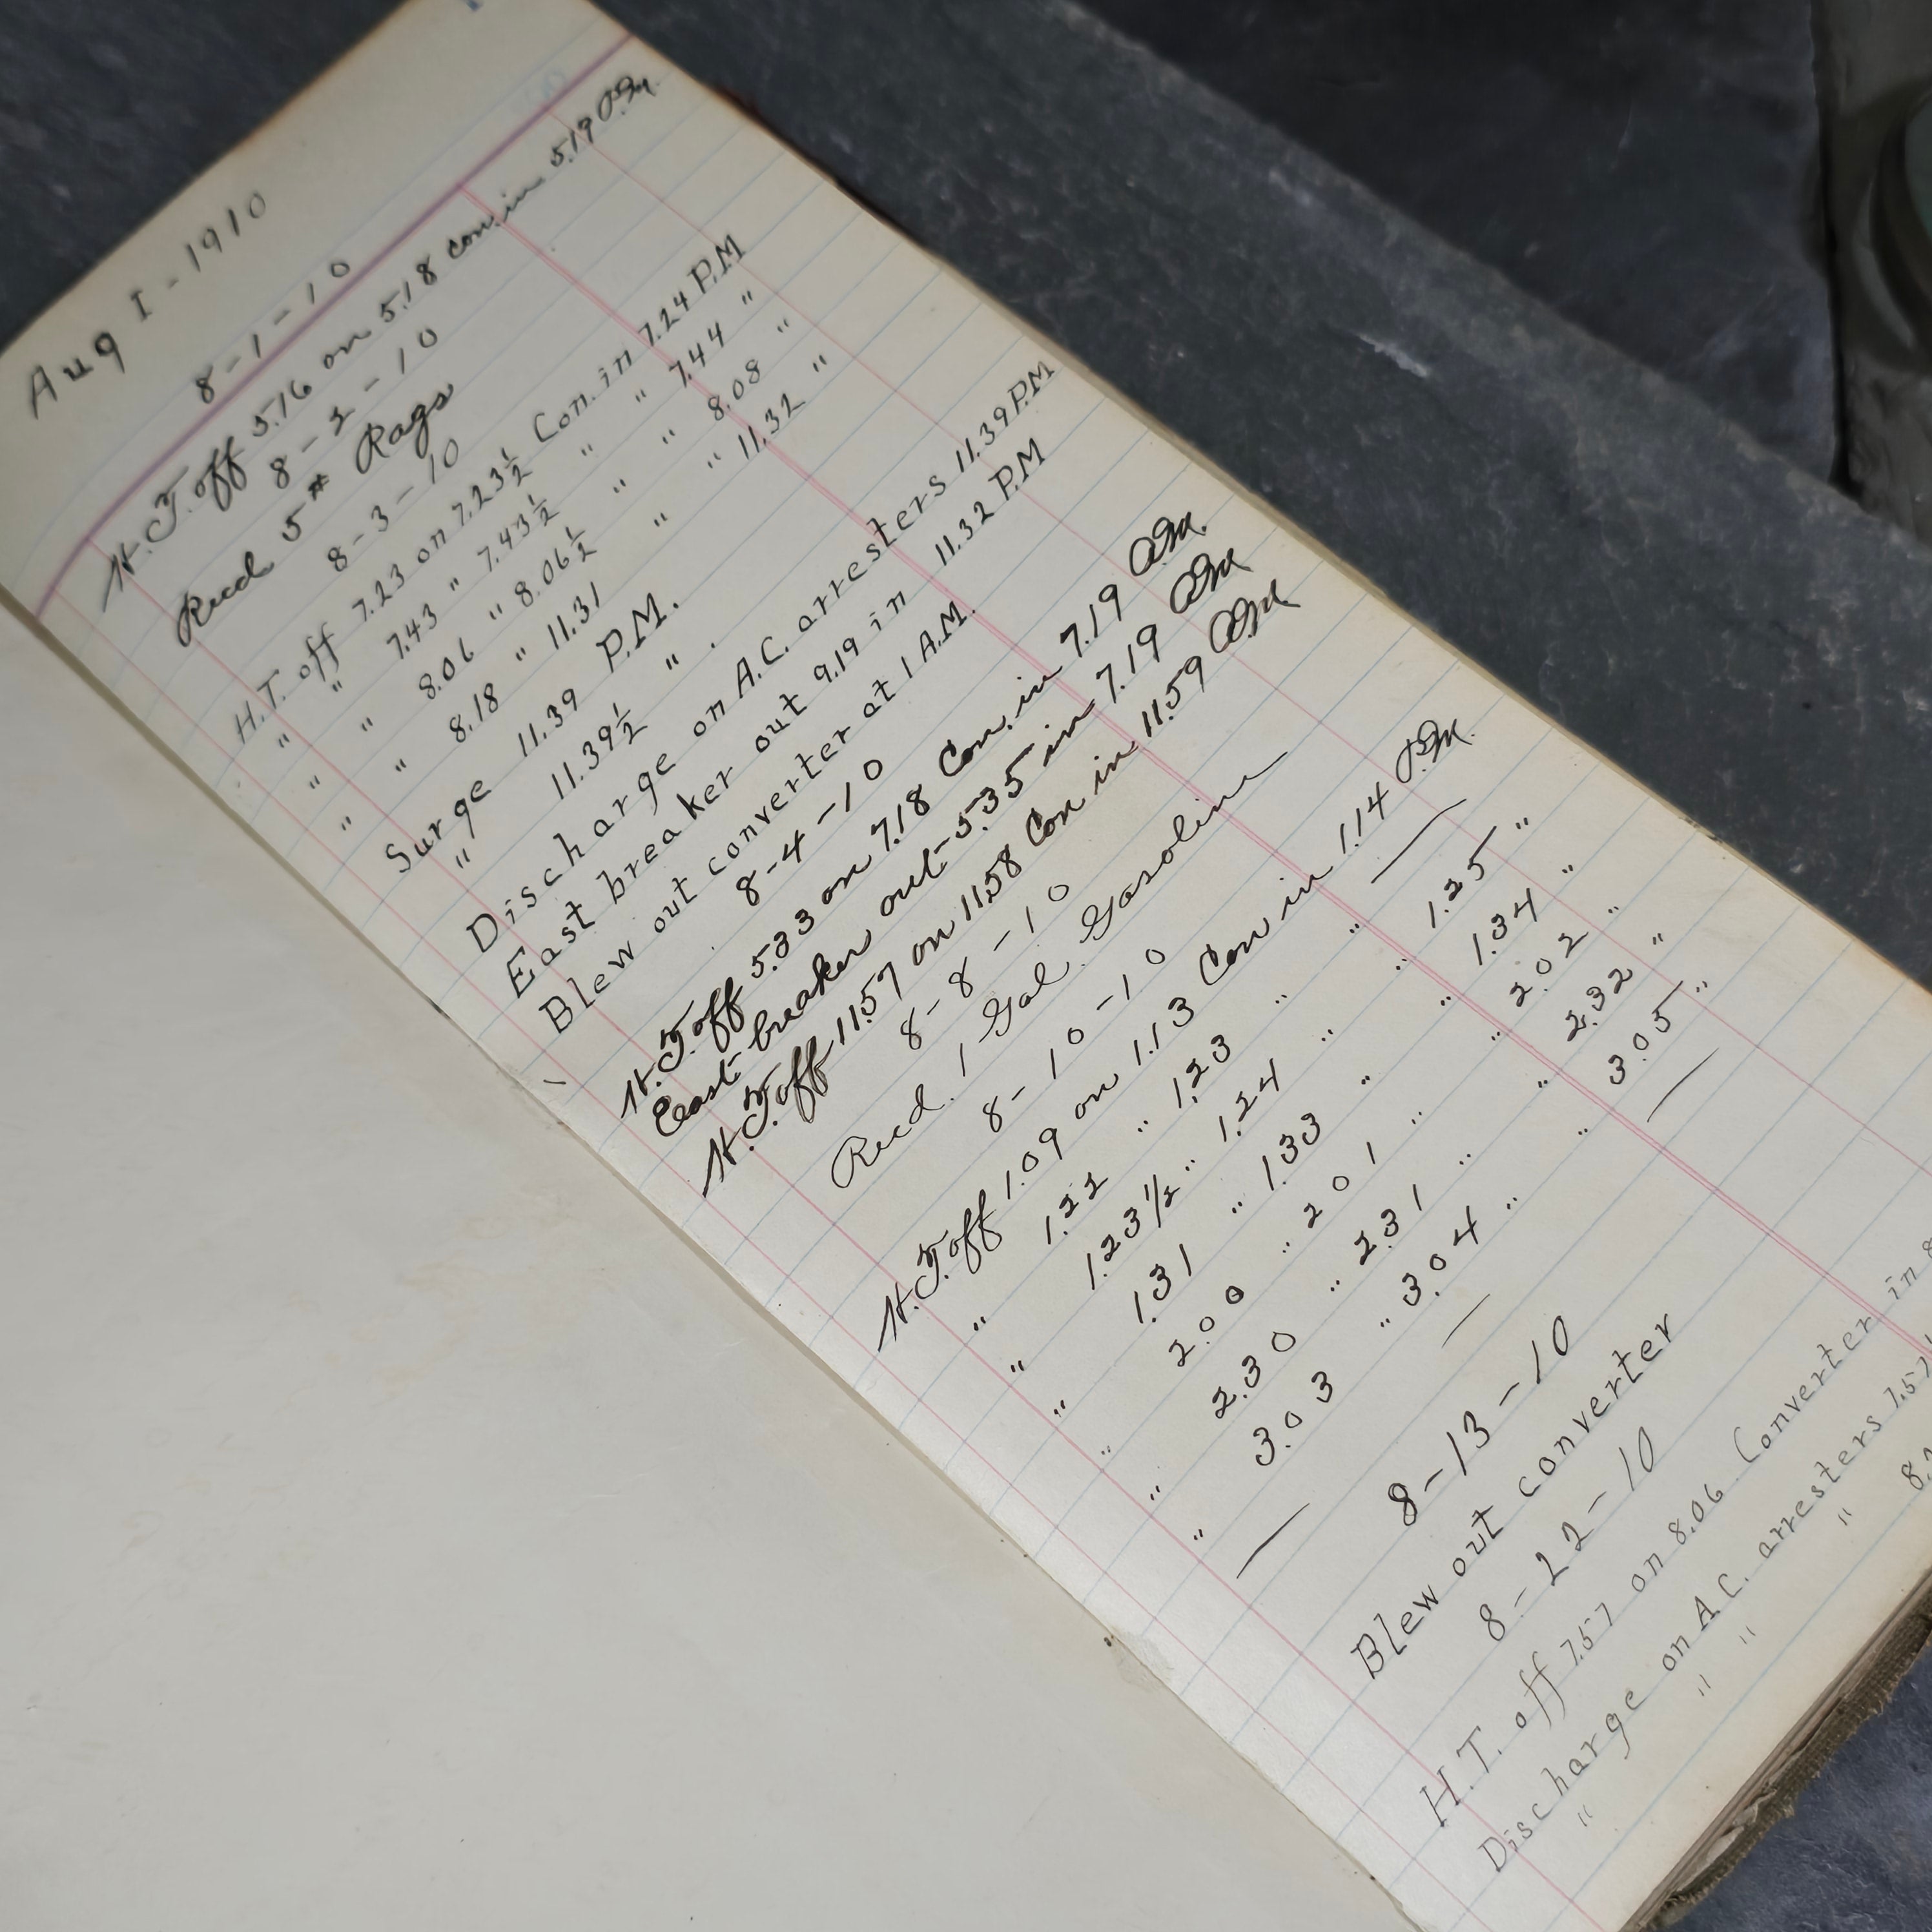 Aug 1-1910
8-1-10
H.T. off 5.16 on 5.18 con. in 5.19 P.M.
8-2-10
Recd 5# Rags
8-3-10
H.T. off 7.23 on 7.23½ Con. in 7.24 P.M
" " 7.43 " 7.43½ " " 7.44 "
" " 8.06 " 8.06½ " " 8.08 "
" " 8.18 " 11.31 " " 11.32 "
Surge 11.39 P.M.
" 11.39½ " .
Discharge on A.C. arresters 11.39 P.M
East breaker out 9.19 in 11.32 P.M
Blew out converter at 1 A.M.
8-4-10
H.T. off 5.33 on 7.18 Con. in 7.19 A.M.
East breaker out 5.35 in 7.19 A.M
H.T. off 11.57 on 11.58 Con in 11.59 A.M
8-8-10
Recd. 1 Gal. Gasoline
8-10-10
H.T. off 1.09 on 1.13 Con in 1.14 P.M.
" 1.22 " 1.23 " " 1.25 "
" 1.23½ " 1.24 " " 1.34 "
" 1.31 " 1.33 " " 2.02 "
" 2.00 " 201 " " 2.32 "
" 2.30 " 2.31 " " 3.05 "
" 3.03 " 3.04 " "
8-13-10
Blew out converter
8-22-10
H.T. off 7.57 on 8.06 Converter in
Discharge on A.C. arresters 7.57
" " " "